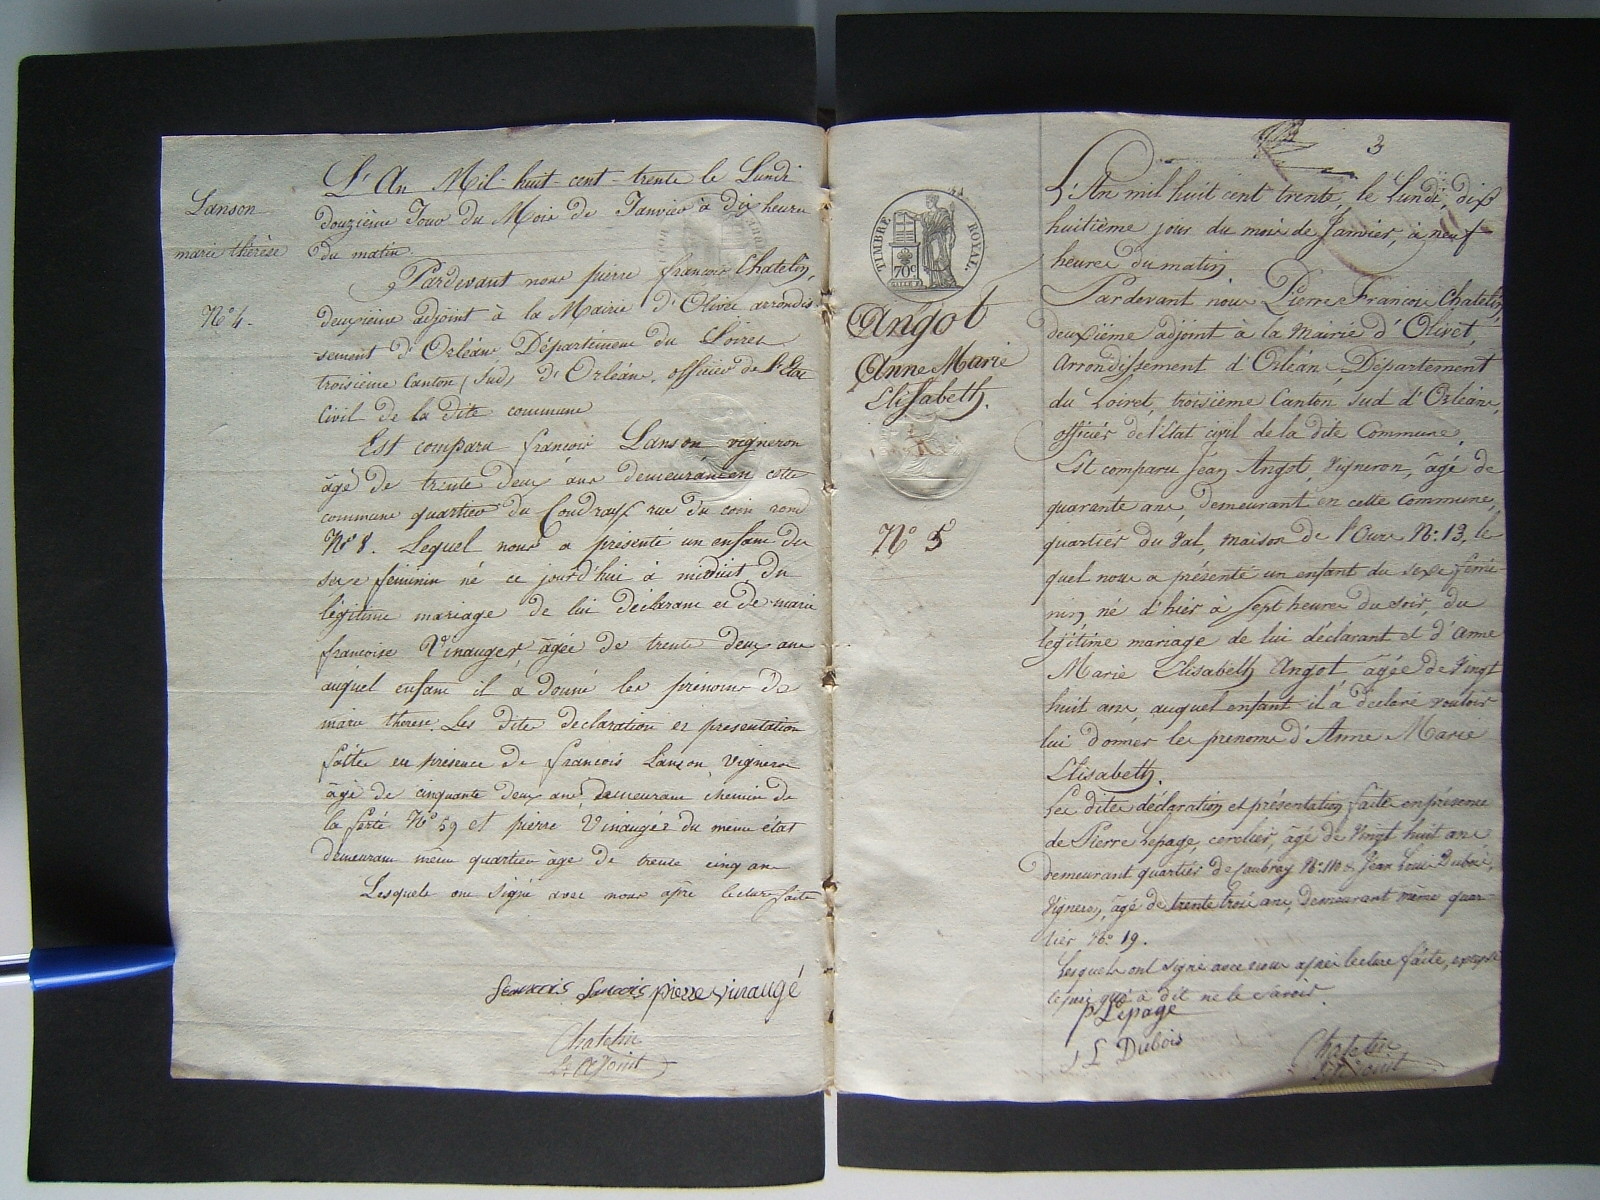 Lanson
marie thérèse
N° 4.
L'An Mil-huit-cent-trente le Lundi
douzième Jour du Mois de Janvier à dix heures
du matin.
Pardevant nous pierre françois Chatelin,
deuxième adjoint à la Mairie d'Olivet arrondis-
sement d'Orléans Département du Loiret
troisième Canton (Sud) d'Orléans, officier de l'Etat
Civil de la dite commune
Est comparu françois Lanson vigneron
âgé de trente deux ans demeurant en cette
commune quartier du Coudray rue du coin rond
N° 8. Lequel nous a présenté un enfant du
sexe féminin né ce jourd'hui à minuit du
légitime mariage de lui déclarant et de marie
françoise Vinauger, âgée de trente deux ans
auquel enfant il a donné les prénoms de
marie thérese. Les dites declaration et presentation
faites en présence de françois Lanson Vigneron
âgé de cinquante deux ans, demeurant chemin de
la ferté N° 59 et pierre Vinaugé du meme état
demeurant meme quartier âgé de trente cinq ans
Lesquels ont signé avec nous après lecture faite
pierre vinaugé
Chatelin
TIMBRE ROYAL.
70c
Angot
Anne Marie
Elisabeth.
N° 5
3
L'An mil huit cent trente, le Lundi, dix
huitième jour du mois de Janvier, à neuf
heures du matin
Pardevant nous Pierre François Chatelin,
deuxième adjoint à la Mairie d'Olivet,
Arrondissement d'Orléans, Département
du Loiret, troisième Canton Sud d'Orléans,
officier de l'Etat civil de la dite Commune,
Est comparu Jean Angot, Vigneron, âgé de
quarante ans, demeurant en cette Commune,
quartier du Val, maison de l'Ours N° 13, le
quel nous a présenté un enfant du sexe fémi-
nin, né d'hier à sept heures du soir, du
légitime mariage de lui déclarant et d'Anne
Marie Elisabeth Angot, âgée de Vingt
huit ans, auquel enfant il a déclaré vouloir
lui donner les prenoms d'Anne Marie
Elisabeth.
Les dites déclaration et présentation faites en présence
de Pierre Lepage, cerclier, âgé de Vingt huit ans
demeurant quartier de Caubray N° 110 & Jean Louis Dubois,
Vigneron, âgé de trente trois ans, demeurant même quar-
tier N° 19.
Lesquels ont signé avec nous après lecture faite, excepté
le pere qui a dit ne le savoir.
P Lepage
J L Dubois
Chatelin